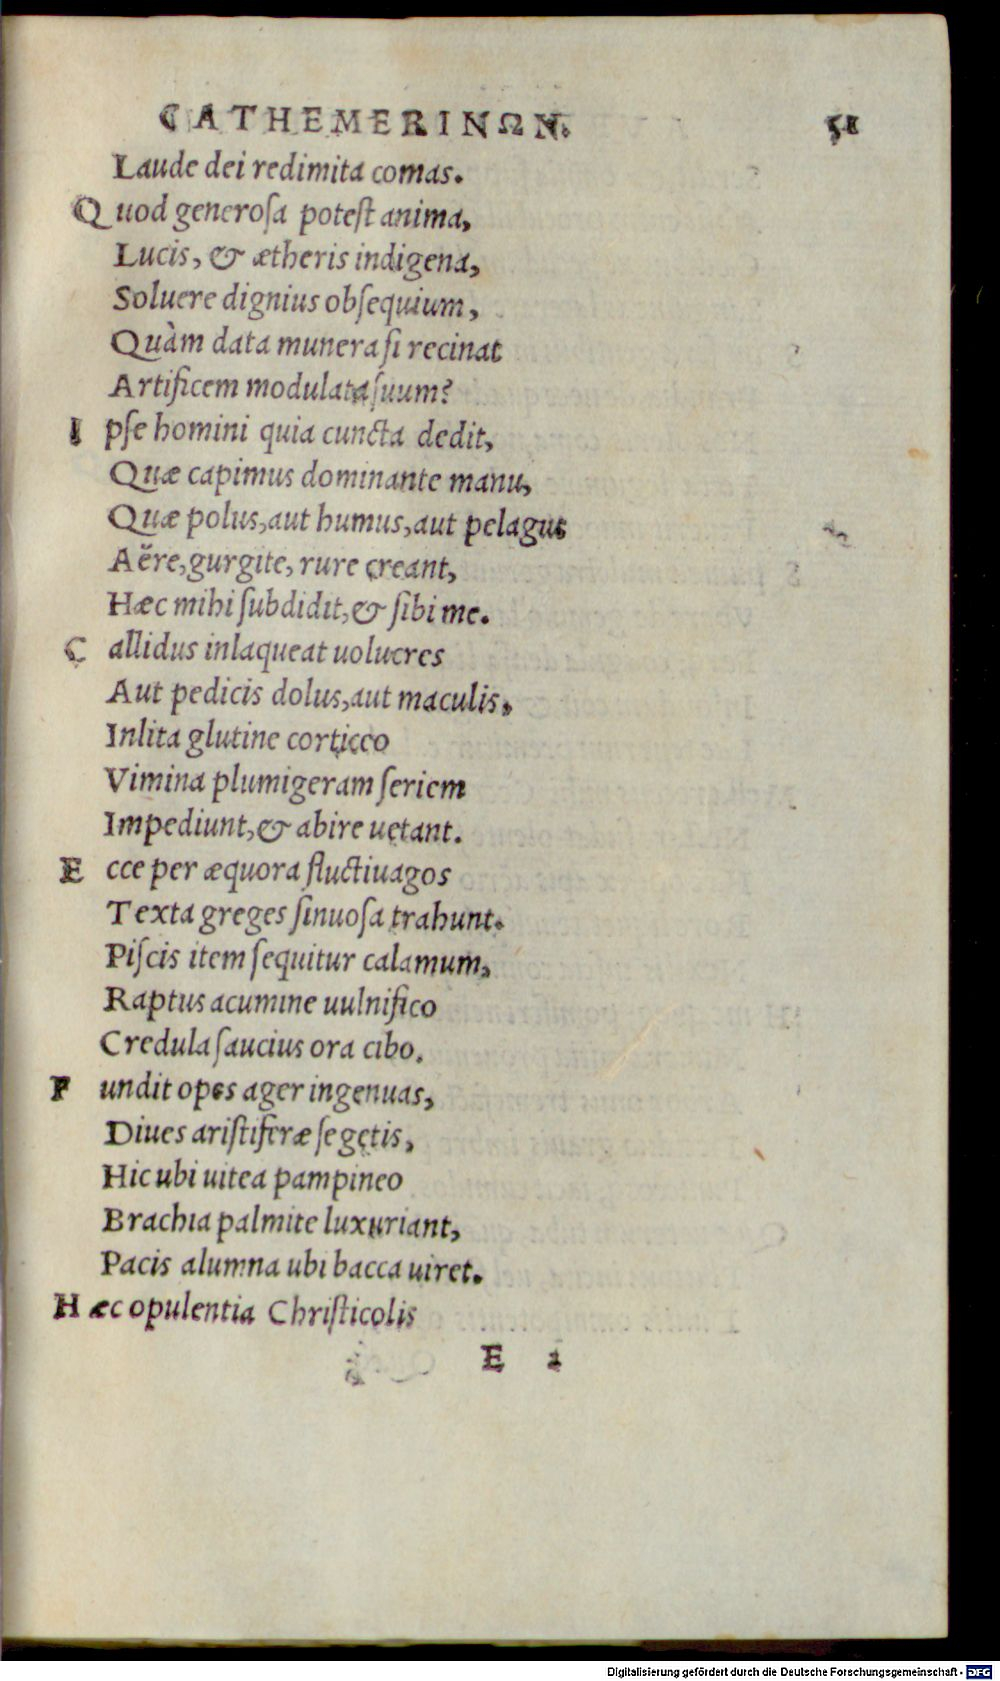 CATHEMERINΩN. 51
Laude dei redimita comas.
Quod generosa potest anima,
Lucis, & ætheris indigena,
Soluere dignius obsequium,
Quàm data munera si recinat
Artificem modulata suum?
Ipse homini quia cuncta dedit,
Quæ capimus dominante manu,
Quæ polus, aut humus, aut pelagus
Aëre, gurgite, rure creant,
Hæc mihi subdidit, & sibi me.
Callidus inlaqueat uolucres
Aut pedicis dolus, aut maculis,
Inlita glutine corticeo
Vimina plumigeram seriem
Impediunt, & abire uetant.
Ecce per æquora fluctiuagos
Texta greges sinuosa trahunt.
Piscis item sequitur calamum,
Raptus acumine uulnifico
Credula saucius ora cibo.
Fundit opes ager ingenuas,
Diues aristiferæ segetis,
Hic ubi uitea pampineo
Brachia palmite luxuriant,
Pacis alumna ubi bacca uiret.
Hæc opulentia Christicolis
E 2
Digitalisierung gefördert durch die Deutsche Forschungsgemeinschaft - DFG